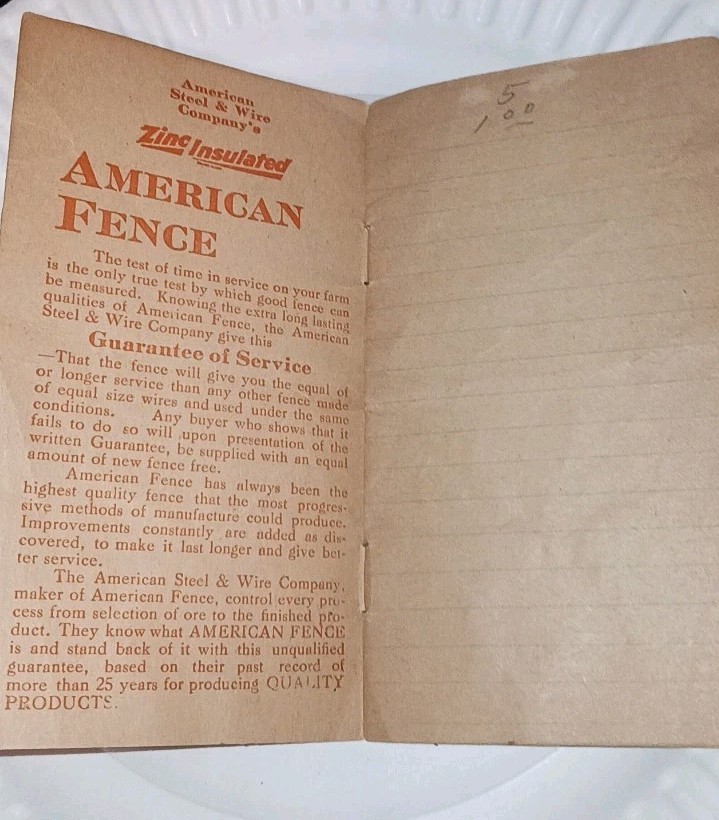 American
Steel & Wire
Company's
Zinc Insulated
AMERICAN
FENCE
The test of time in service on your farm
is the only true test by which good fence can
be measured. Knowing the extra long lasting
qualities of American Fence, the American
Steel & Wire Company give this
Guarantee of Service
—That the fence will give you the equal of
or longer service than any other fence made
of equal size wires and used under the same
conditions. Any buyer who shows that it
fails to do so will upon presentation of the
written Guarantee, be supplied with an equal
amount of new fence free.
American Fence has always been the
highest quality fence that the most progres-
sive methods of manufacture could produce.
Improvements constantly are added as dis-
covered, to make it last longer and give bet-
ter service.
The American Steel & Wire Company,
maker of American Fence, control every pro-
cess from selection of ore to the finished pro-
duct. They know what AMERICAN FENCE
is and stand back of it with this unqualified
guarantee, based on their past record of
more than 25 years for producing QUALITY
PRODUCTS.
5
1 00